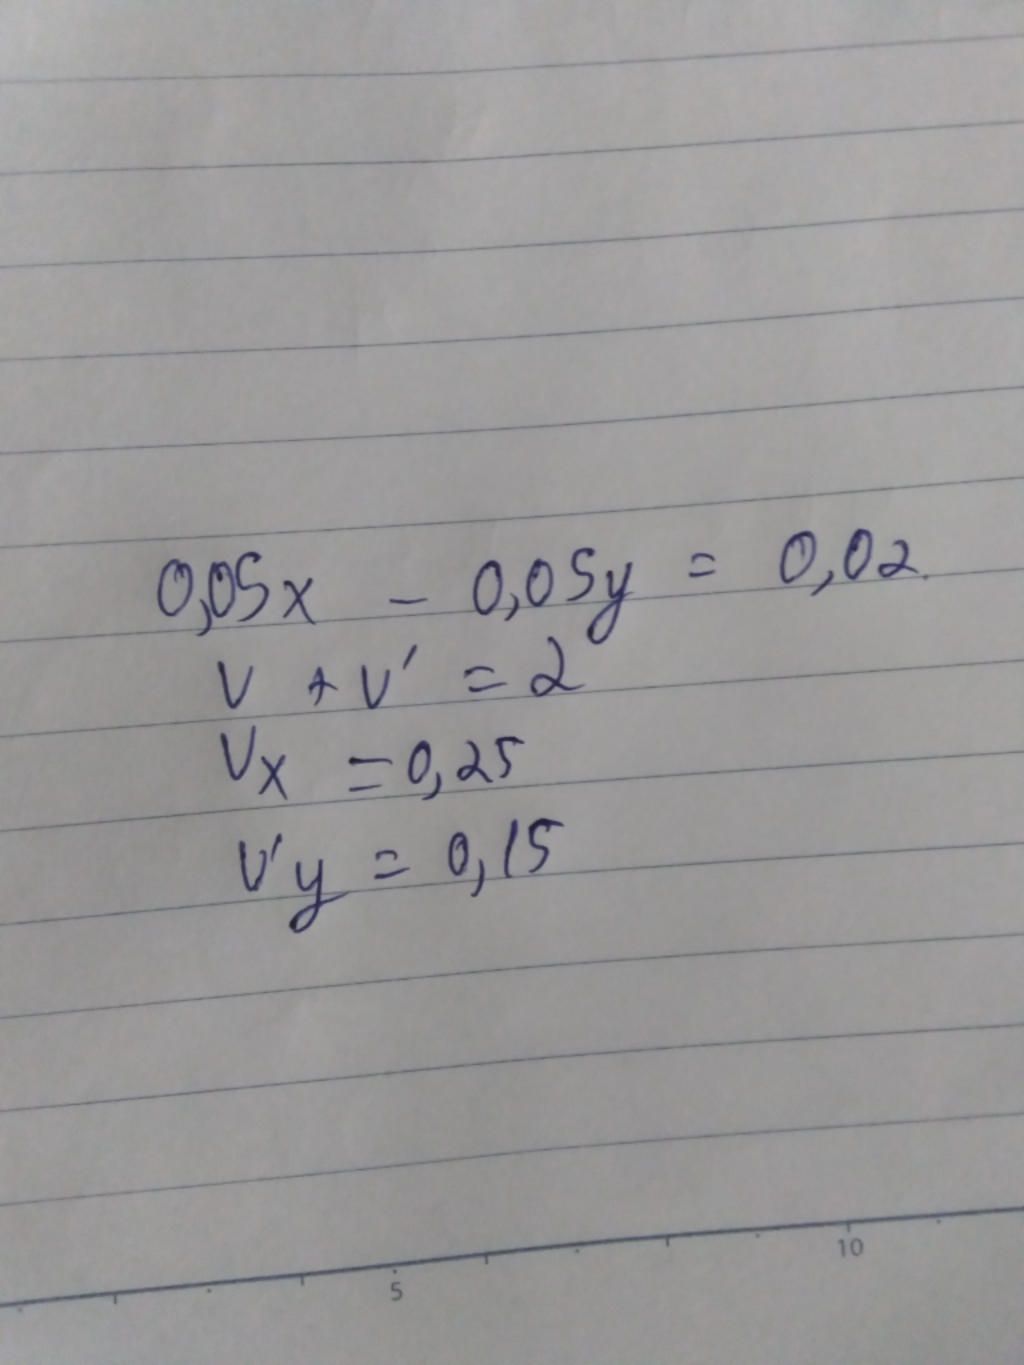 0,05x - 0,05y = 0,02
V + V' = 2
Vx = 0,25
V'y = 0,15
5 10